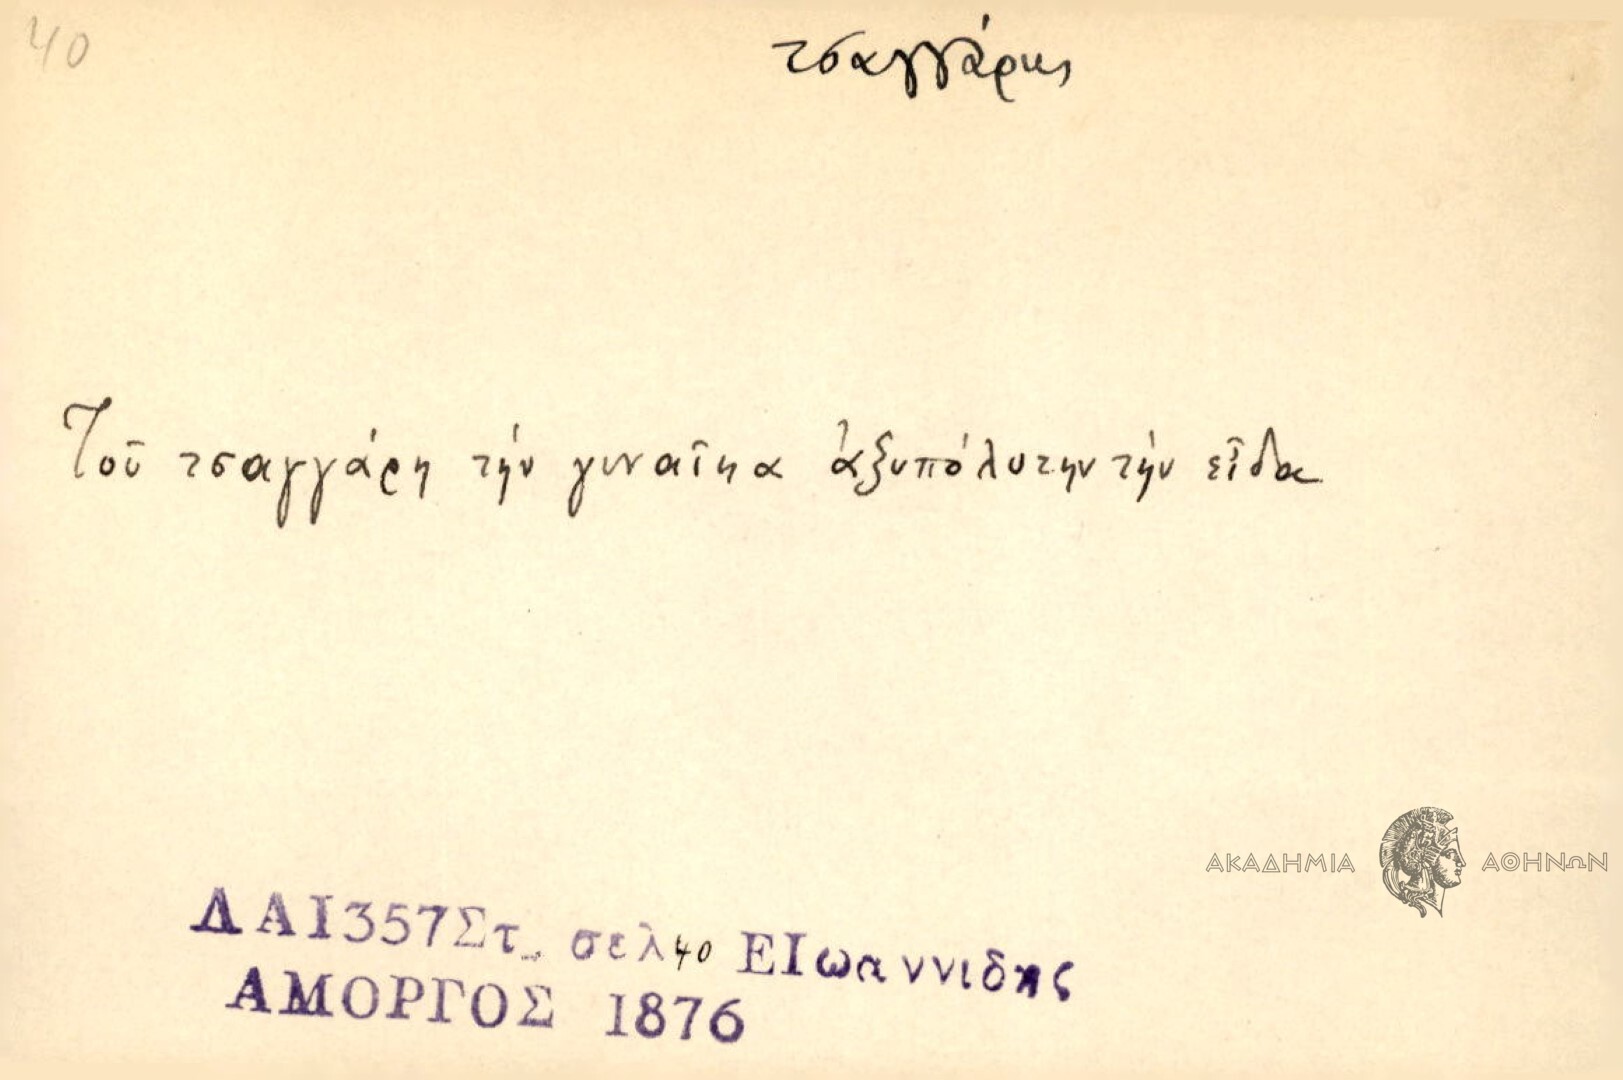 40
τσαγγάρης
Τοῦ τσαγγάρη τήν γυναῖκα ἀξυπόλυτην τήν εἶδα
ΑΚΑΔΗΜΙΑ ΑΘΗΝΩΝ
ΔΑΙ357Στ. σελ 40 ΕΙωαννιδης
ΑΜΟΡΓΟΣ 1876